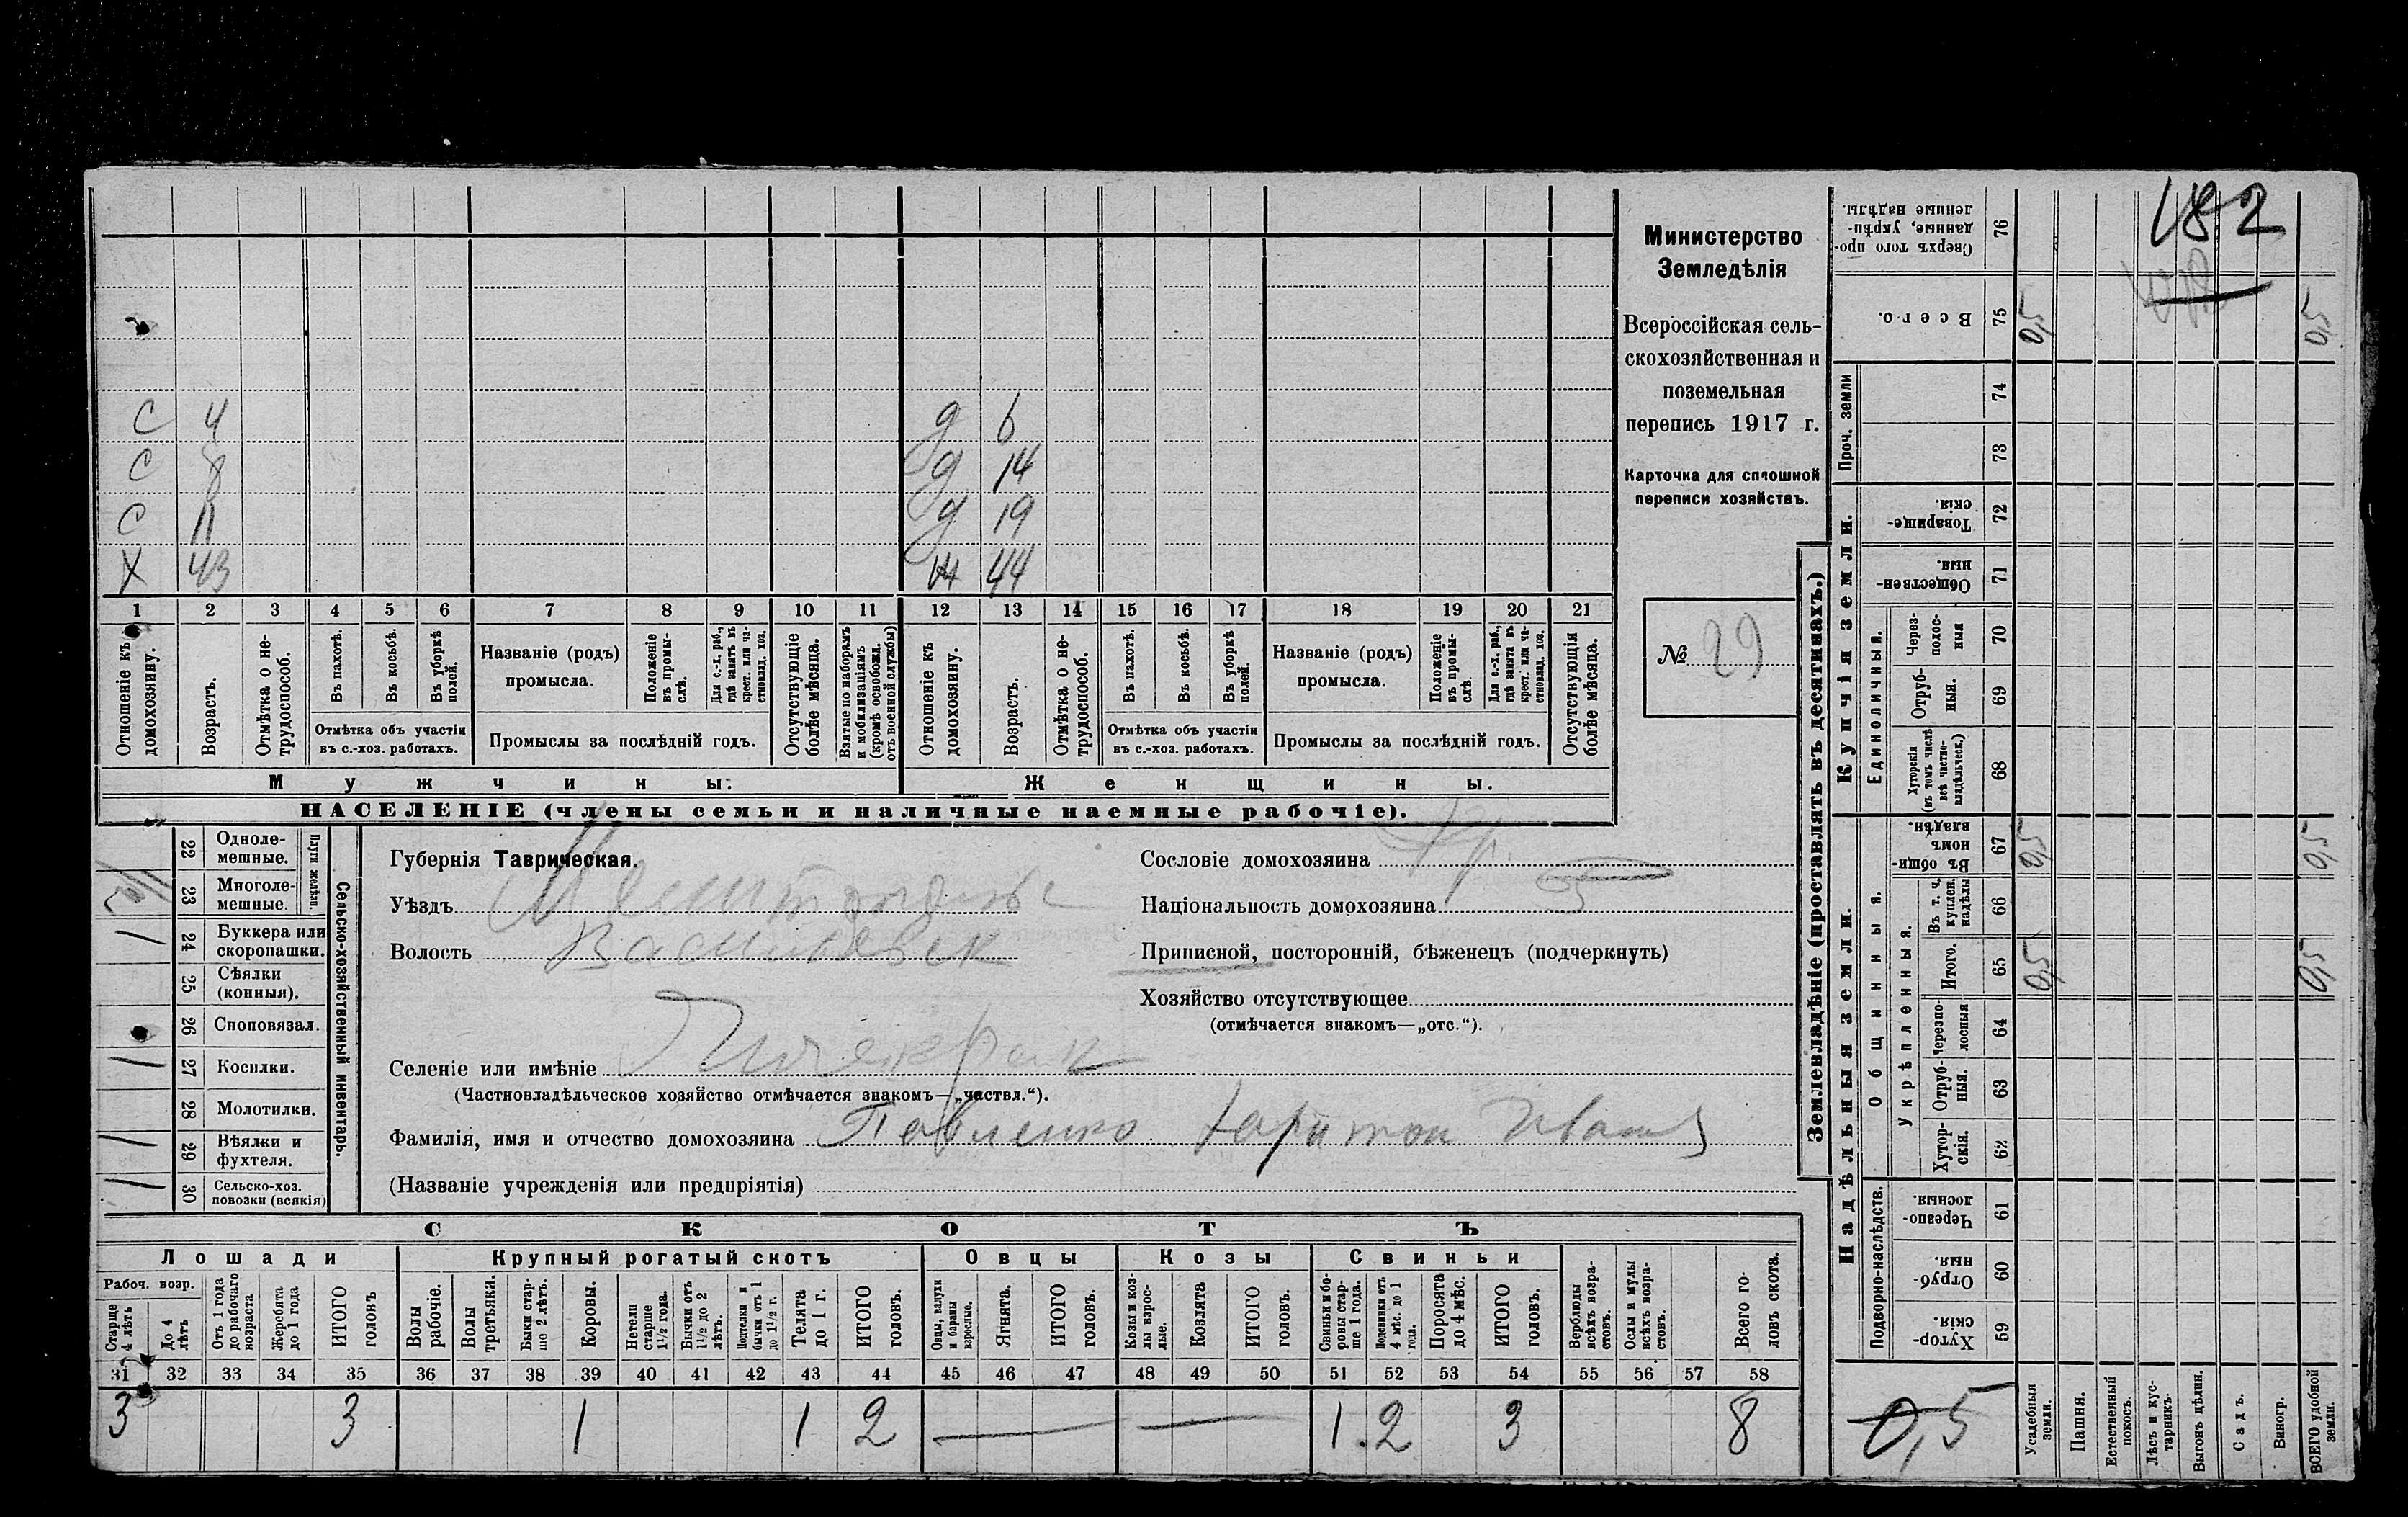 182
С 4 д 6
С 8 д 14
С 11 д 19
Х 43 ж 44
1 2 3 4 5 6 7 8 9 10 11 12 13 14 15 16 17 18 19 20 21
Отношеніе къ домохозяину.
Возрастъ.
Отмѣтка о не-
трудоспособ.
Въ пахотѣ.
Въ косьбѣ.
Въ уборкѣ полей.
Отмѣтка объ участіи
въ с.-хоз. работахъ.
Названіе (родъ)
промысла.
Положеніе въ промы-
слѣ.
Для с.-х. раб., гдѣ занятъ въ крест. или ча-
стновлад. хоз.
Промыслы за послѣдній годъ.
Отсутствующіе болѣе мѣсяца.
Взятые по наборамъ и мобилизаціямъ (кромѣ освобожд. отъ военной службы)
Отношеніе къ домохозяину.
Возрастъ.
Отмѣтка о не-
трудоспособ.
Въ пахотѣ.
Въ косьбѣ.
Въ уборкѣ полей.
Отмѣтка объ участіи
въ с.-хоз. работахъ.
Названіе (родъ)
промысла.
Положеніе въ промы-
слѣ.
Для с.-х. раб., гдѣ занята въ крест. или ча-
стновлад. хоз.
Промыслы за послѣдній годъ.
Отсутствующія болѣе мѣсяца.
Мужчины. Женщины.
НАСЕЛЕНІЕ (члены семьи и наличные наемные рабочіе).
Министерство
Земледѣлія
Всероссійская сель-
скохозяйственная и
поземельная
перепись 1917 г.
Карточка для сплошной
переписи хозяйствъ.
№ 29
Сельско-хозяйственный инвентарь.
Плуги желѣзн.
22 Одноле-
мешные.
23 Многоле-
мешные.
24 Буккера или
скоропашки.
25 Сѣялки
(конныя).
26 Сноповязал.
27 Косилки.
28 Молотилки.
29 Вѣялки и
фухтеля.
30 Сельско-хоз.
повозки (всякія)
Губернія Таврическая.
Уѣздъ
Волость Васильевск
Селеніе или имѣніе
(Частновладѣльческое хозяйство отмѣчается знакомъ—„частвл.“).
Фамилія, имя и отчество домохозяина Павленко Харитон Иван
(Названіе учрежденія или предпріятія)
Сословіе домохозяина Кр.
Національность домохозяина
Приписной, посторонній, бѣженецъ (подчеркнуть)
Хозяйство отсутствующее
(отмѣчается знакомъ—„отс.“).
СКОТЪ
Лошади Крупный рогатый скотъ Овцы Козы Свиньи
Рабоч. возр.
Старше 4 лѣтъ
До 4 лѣтъ
Отъ 1 года до рабочаго возраста
Жеребята до 1 года
ИТОГО головъ
Волы рабочіе.
Волы третьяки.
Быки стар-
ше 2 лѣтъ.
Коровы.
Нетели старше 1½ года.
Бычки отъ 1½ до 2 лѣтъ.
Подтелки и бычки отъ 1 до 1½ г.
Телята до 1 г.
ИТОГО головъ.
Овцы, валухи и бараны взрослые.
Ягнята.
ИТОГО головъ.
Козы и коз-
лы взрос-
лые.
Козлята
ИТОГО головъ.
Свиньи и бо-
ровы стар-
ше 1 года.
Подсвинки отъ 4 мѣс. до 1 года.
Поросята до 4 мѣс.
ИТОГО головъ.
Верблюды всѣхъ возра-
стовъ.
Ослы и мулы всѣхъ возра-
стовъ.
Всего го-
ловъ скота.
31 32 33 34 35 36 37 38 39 40 41 42 43 44 45 46 47 48 49 50 51 52 53 54 55 56 57 58
3 3 1 1 2 — — 1 2 3 8
Землевладѣніе (проставлять въ десятинахъ.)
Надѣльныя земли. Купчія земли.
Подворно-наслѣдств.
Общинныя.
Укрѣпленныя.
Единоличныя.
Проч. земли
Хутор-
скія. 59
Отруб-
ныя. 60
Черезпо-
лосныя 61
Хутор-
скія. 62
Отруб-
ныя. 63
Черезпо-
лосныя 64
Итого. 65 0,5 0,5
Въ т. ч. куплен. надѣлы 66
Въ общин-
номъ владѣн. 67 0,5 0,5
Хуторскія (въ томъ числѣ всѣ частно-
владѣльческ.) 68
Отруб-
ныя. 69
Через-
полос-
ныя 70
Обществен-
ныя. 71
Товарище-
скія 72
73
74
Всего. 75 0,5 0,5
Сверхъ того про-
данные, укрѣп-
ленные надѣлы. 76
0,5
Усадебныя земли.
Пашня.
Естественный покосъ.
Лѣсъ и кус-
тарникъ.
Выгонъ цѣлин.
Садъ.
Виногр.
ВСЕГО удобной земли.